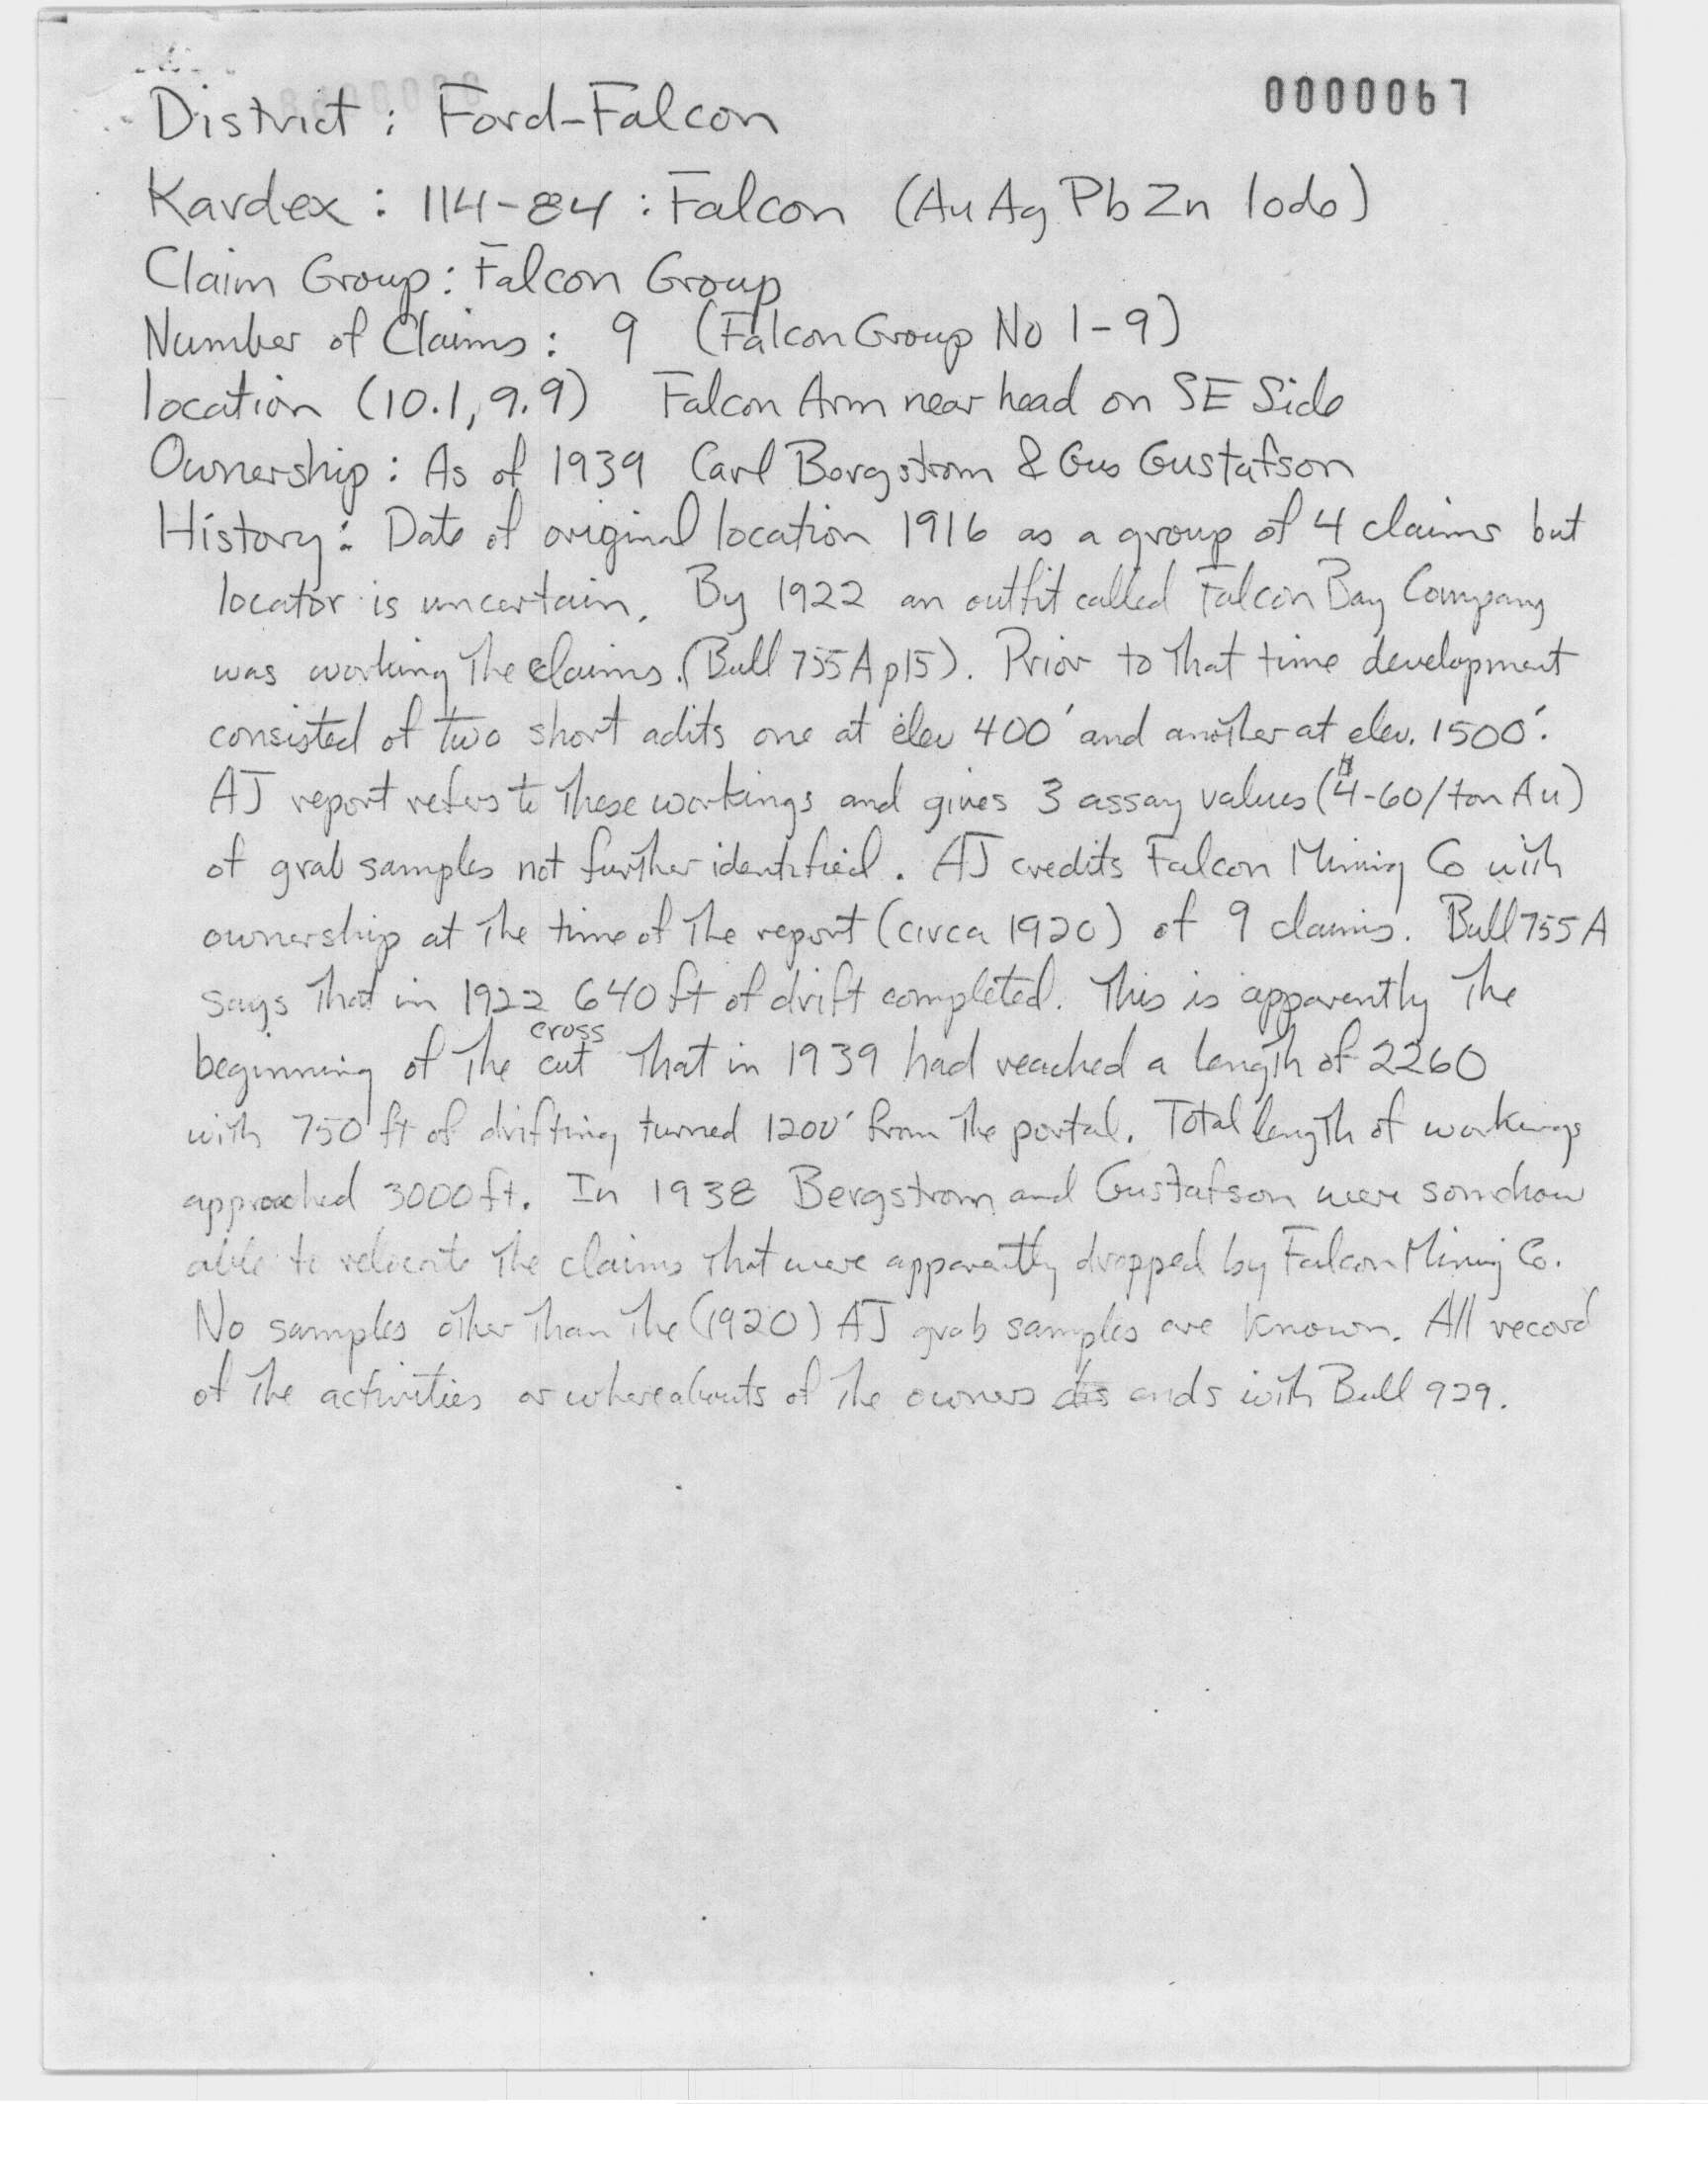 0000067
District : Ford-Falcon
Kardex : 114-84 : Falcon (Au Ag Pb Zn lode)
Claim Group : Falcon Group
Number of Claims : 9 (Falcon Group No 1-9)
location (10.1, 9.9) Falcon Arm near head on SE Side
Ownership : As of 1939 Carl Bergstrom & Gus Gustafson
History : Date of original location 1916 as a group of 4 claims but
locator is uncertain. By 1922 an outfit called Falcon Bay Company
was working the claims. (Bull 755A p15). Prior to that time development
consisted of two short adits one at elev 400' and another at elev. 1500'.
AJ report refers to these workings and gives 3 assay values ($4-60/ton Au)
of grab samples not further identified. AJ credits Falcon Mining Co with
ownership at the time of the report (circa 1920) of 9 claims. Bull 755A
says that in 1922 640 ft of drift completed. This is apparently the
beginning of the cross cut that in 1939 had reached a length of 2260
with 750 ft of drifting turned 1200' from the portal. Total length of workings
approached 3000 ft. In 1938 Bergstrom and Gustafson were somehow
able to relocate the claims that were apparently dropped by Falcon Mining Co.
No samples other than the (1920) AJ grab samples are known. All record
of the activities or whereabouts of the owners ends with Bull 929.